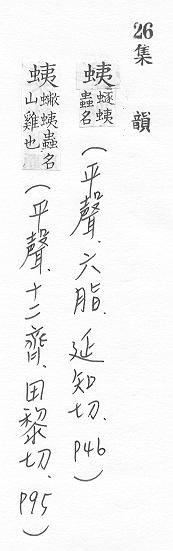 26集韻
蛦 螔蛦蟲名(平聲.六脂.延知切.P46)
蛦 螏蛦蟲名山雞也(平聲.十二齊.田黎切.P95)